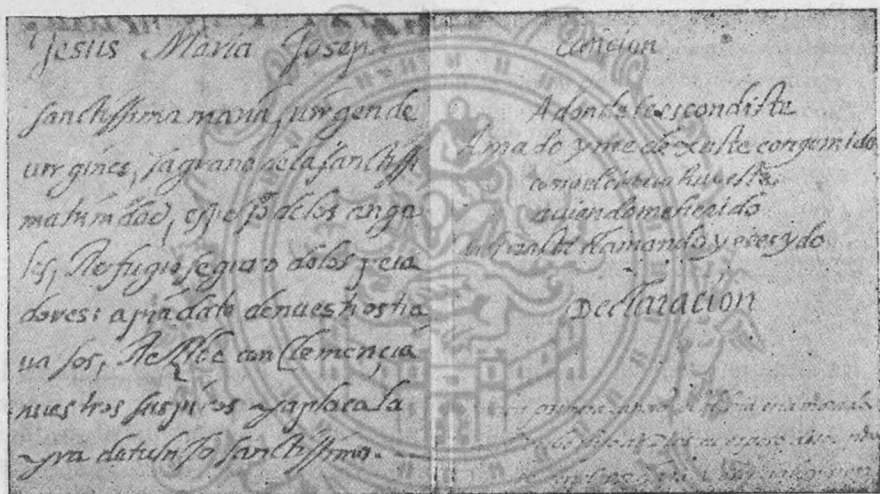 Jesus Maria Joseph
sanctissima maria, virgen de
virgines, sagrario de la sanctissi
ma trinidad, espejo de los ange
les, Refugio seguro de los peca
dores: apiadate de nuestros tra
uajos, Recibe con clemencia
nuestros suspiros y aplaca la
yra de tu hijo sanctissimo.
Cancion
Adonde te escondiste
Amado y me dexaste con gemido
como el cieruo huiste
auiendome herido
clamando y eras ydo
Declaracion
En primera cancion el